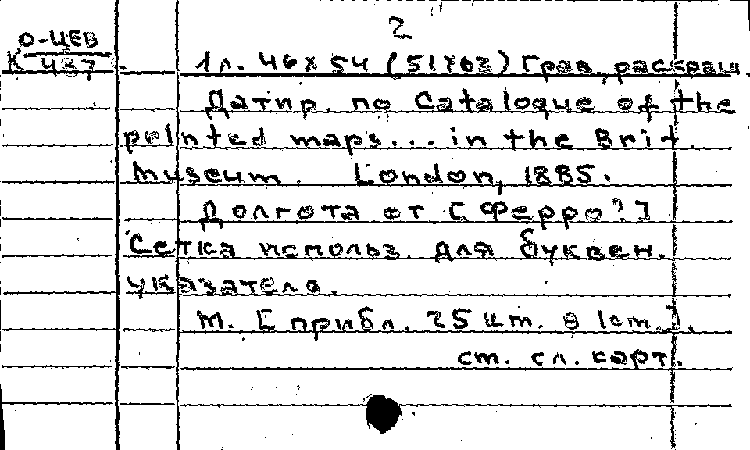 2
О-ЦЕВ
К 437
1 л. 46х54 (51х63) Грав. раскраш.
Датир. по Catalogue of the
printed maps... in the Brit.
Museum. London, 1885.
Долгота от [Ферро?]
Сетка использ. для буквен.
указателя.
М. [прибл. 25 km. в 1 cm.].
см. сл. карт.